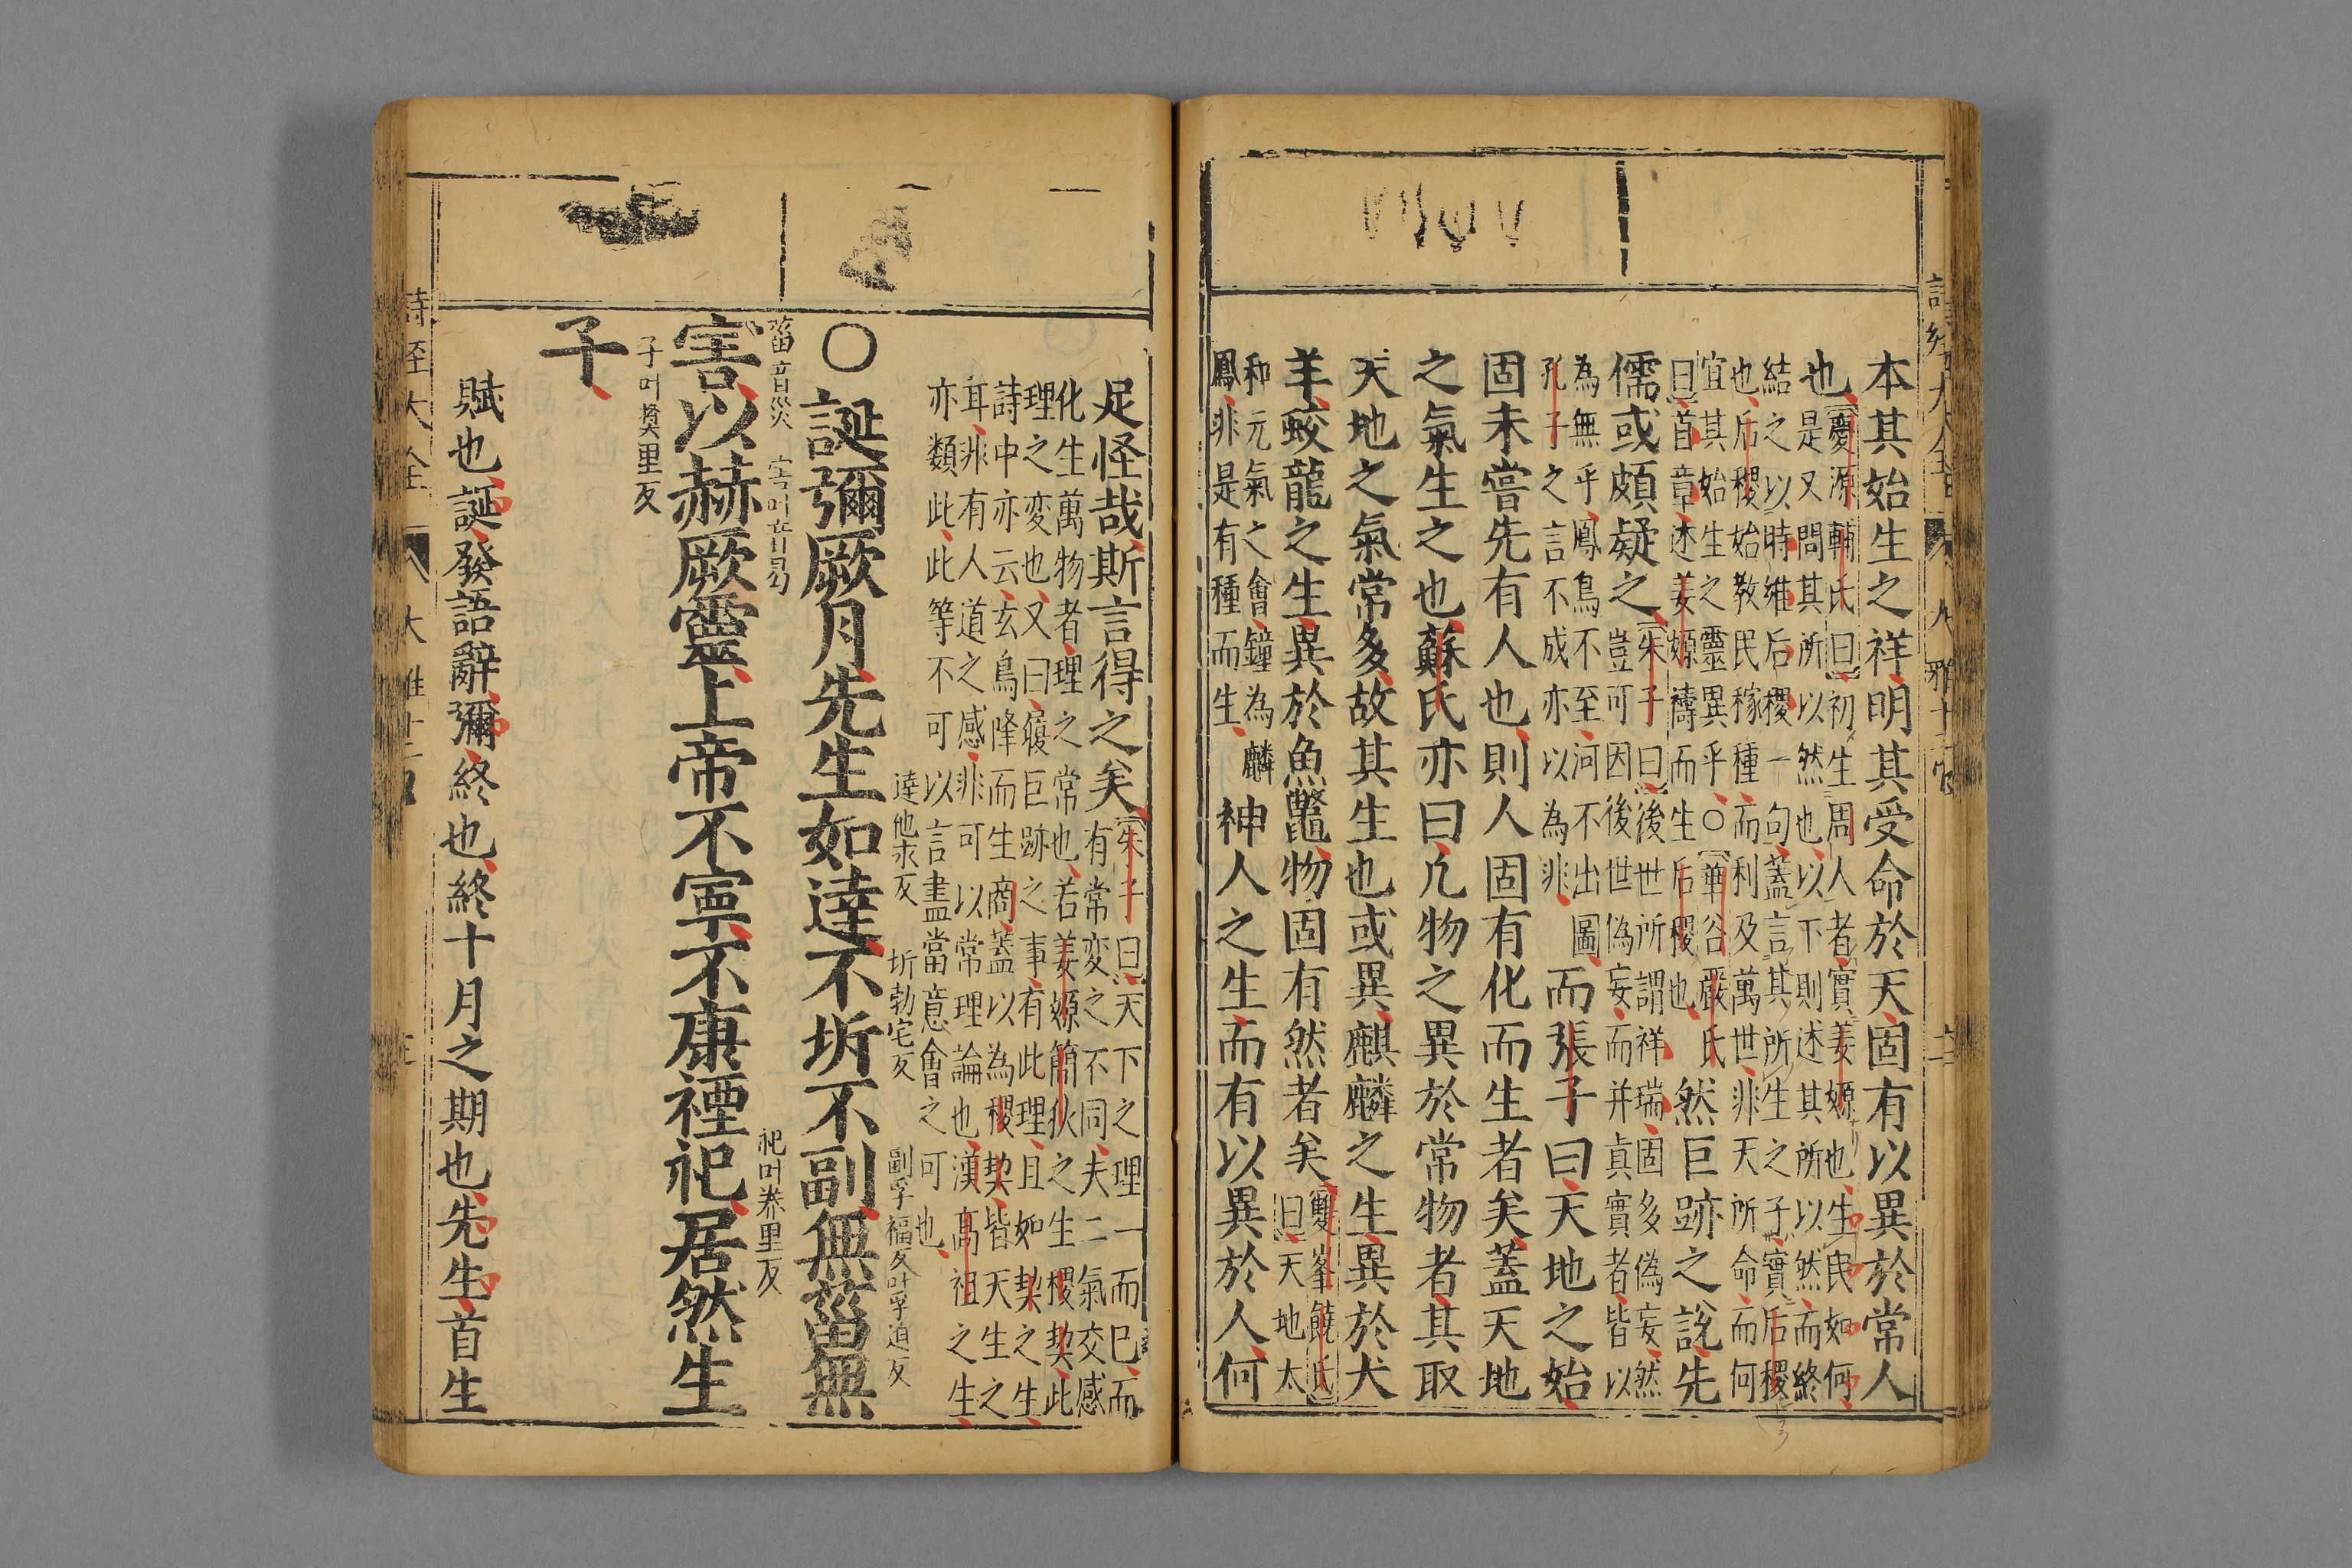 本其始生之祥明其受命於天固有以異於常人
也慶源輔氏曰初生周人者實姜嫄也生民如何
是又問其所以然也以下則述其所以然而終
結之以時維后稷一句蓋言其所生之子實后稷
也后稷始教民稼種而利及萬世非天所命而何
宜其始生之靈異乎○華谷嚴氏
曰首章述姜嫄禱而生后稷也
然巨跡之說先
儒或頗疑之朱子曰後世所謂祥瑞固多偽妄然
豈可因後世偽妄而并真實者皆以
為無乎鳳鳥不至河不出圖
孔子之言不成亦以為非
而張子曰天地之始
固未嘗先有人也則人固有化而生者矣蓋天地
之氣生之也蘇氏亦曰凢物之異於常物者其取
天地之氣常多故其生也或異麒麟之生異於犬
羊蛟龍之生異於魚鼈物固有然者矣雙峯饒氏
曰天地太
和元氣之會鐘為麟
鳳非是有種而生
神人之生而有以異於人何
足怪哉斯言得之矣朱子曰天下之理一而已而
有常変之不同夫二氣交感
化生萬物者理之常也若姜嫄簡狄之生稷契此
理之変也又曰履巨跡之事有此理且如契之生
詩中亦云玄鳥降而生商蓋以為稷契皆天生之
耳非有人道之感非可以常理論也漢高祖之生
亦類此此等不可以言盡當意會之可也
○誕彌厥月先生如達達他末反不坼坼勅宅反不副副孚福反叶孚迫反無菑無
菑音災
害害叶音曷以赫厥靈上帝不寧不康禋祀祀叶養里反居然生
子子叶奬里反
賦也誕發語辭彌終也終十月之期也先生首生
詩経大全
大雅十七